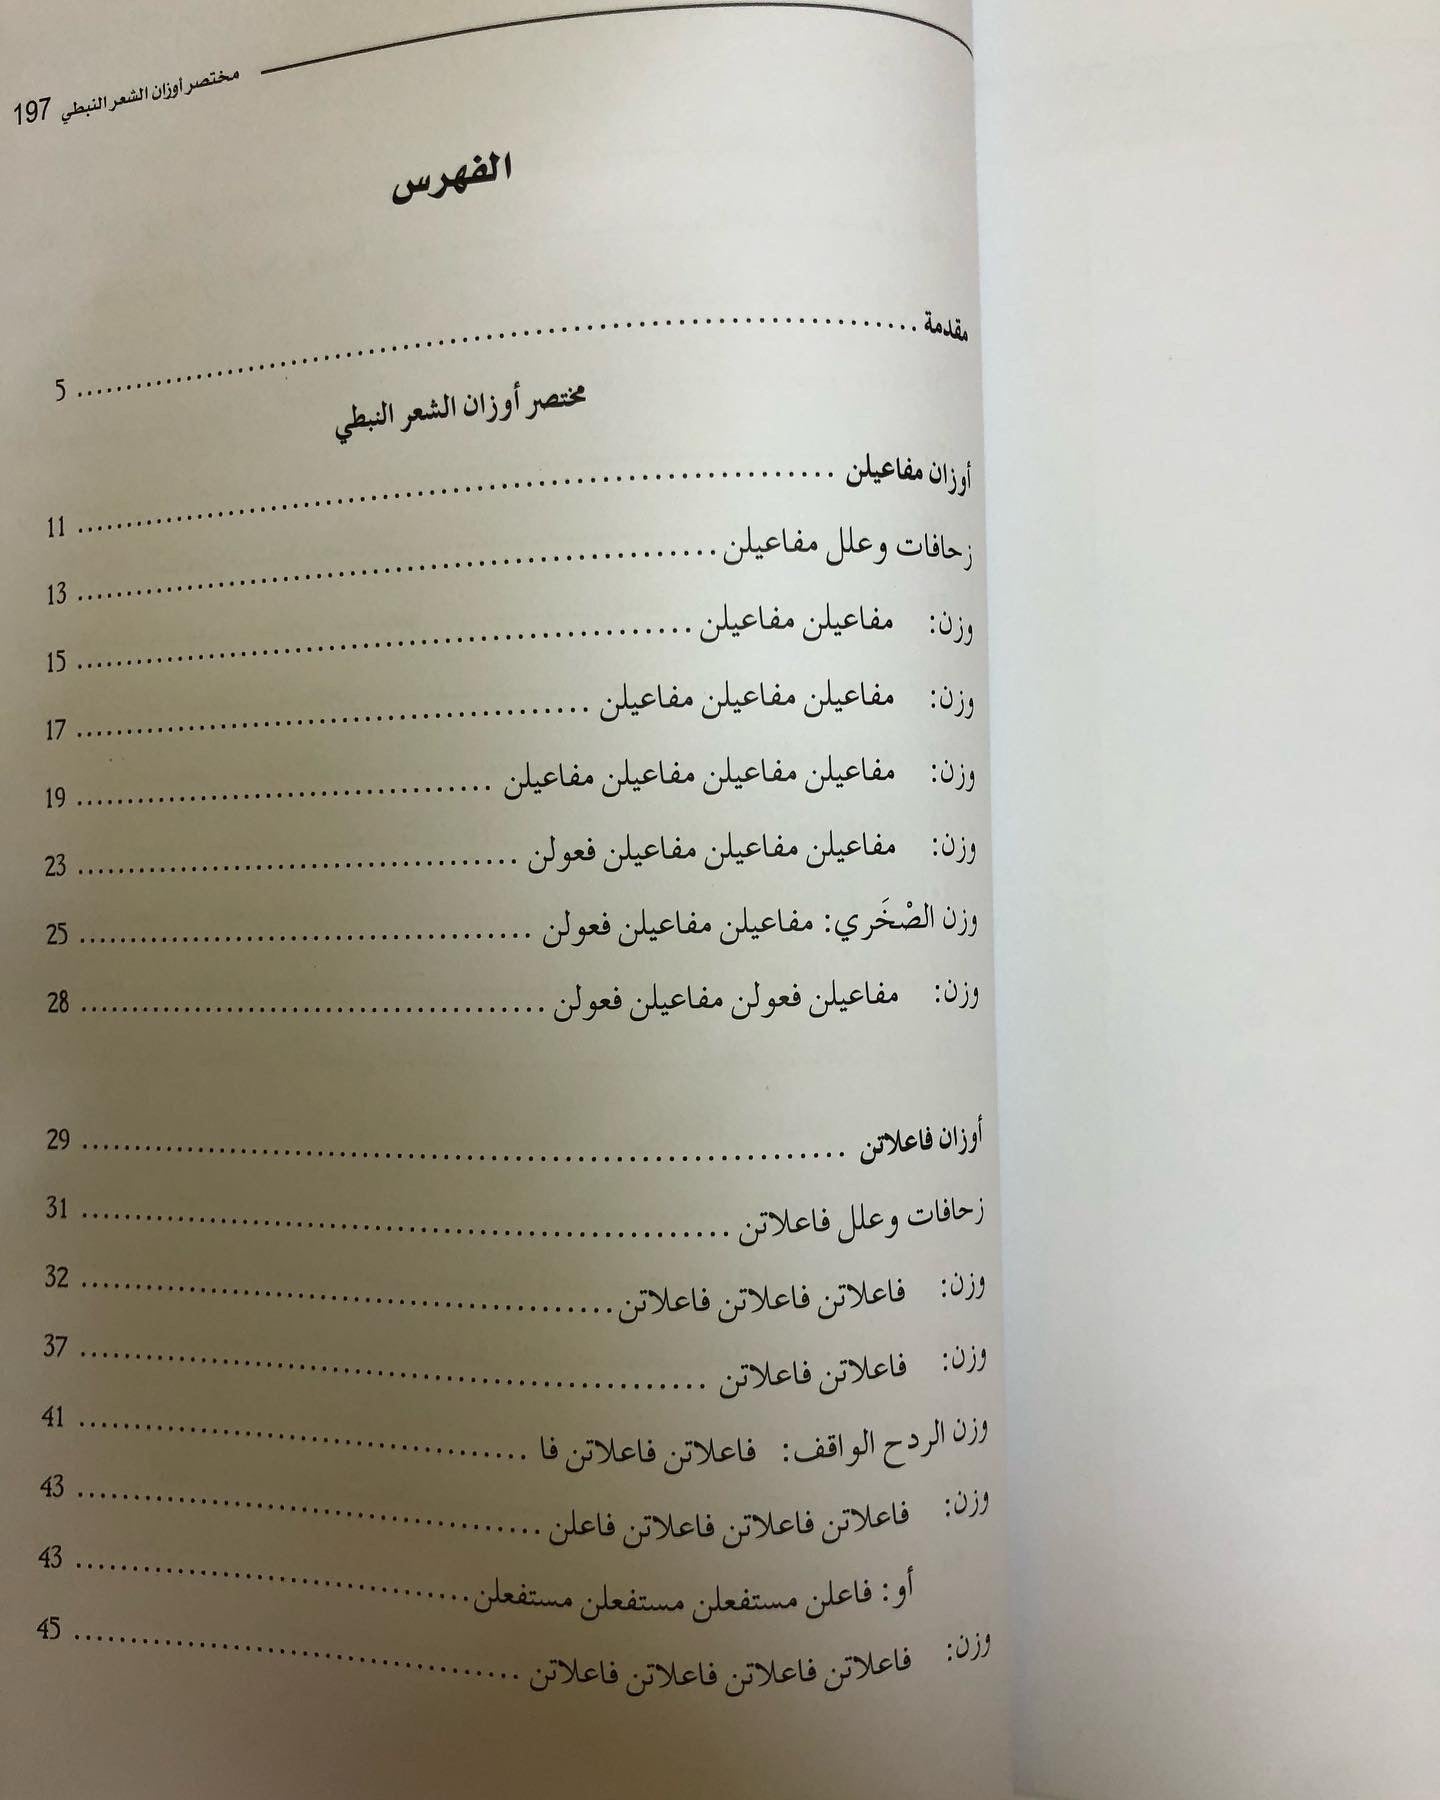 مختصر أوزان الشعر النبطي 197
الفهرس
مقدمة 5
مختصر أوزان الشعر النبطي
أوزان مفاعيلن 11
زحافات وعلل مفاعيلن 13
وزن: مفاعيلن مفاعيلن 15
وزن: مفاعيلن مفاعيلن مفاعيلن 17
وزن: مفاعيلن مفاعيلن مفاعيلن مفاعيلن 19
وزن: مفاعيلن مفاعيلن مفاعيلن فعولن 23
وزن الصْخَري: مفاعيلن مفاعيلن فعولن 25
وزن: مفاعيلن فعولن مفاعيلن فعولن 28
أوزان فاعلاتن 29
زحافات وعلل فاعلاتن 31
وزن: فاعلاتن فاعلاتن فاعلاتن 32
وزن: فاعلاتن فاعلاتن 37
وزن الردح الواقف: فاعلاتن فاعلاتن فا 41
وزن: فاعلاتن فاعلاتن فاعلاتن فاعلن 43
أو: فاعلن مستفعلن مستفعلن مستفعلن 43
وزن: فاعلاتن فاعلاتن فاعلاتن فاعلاتن 45